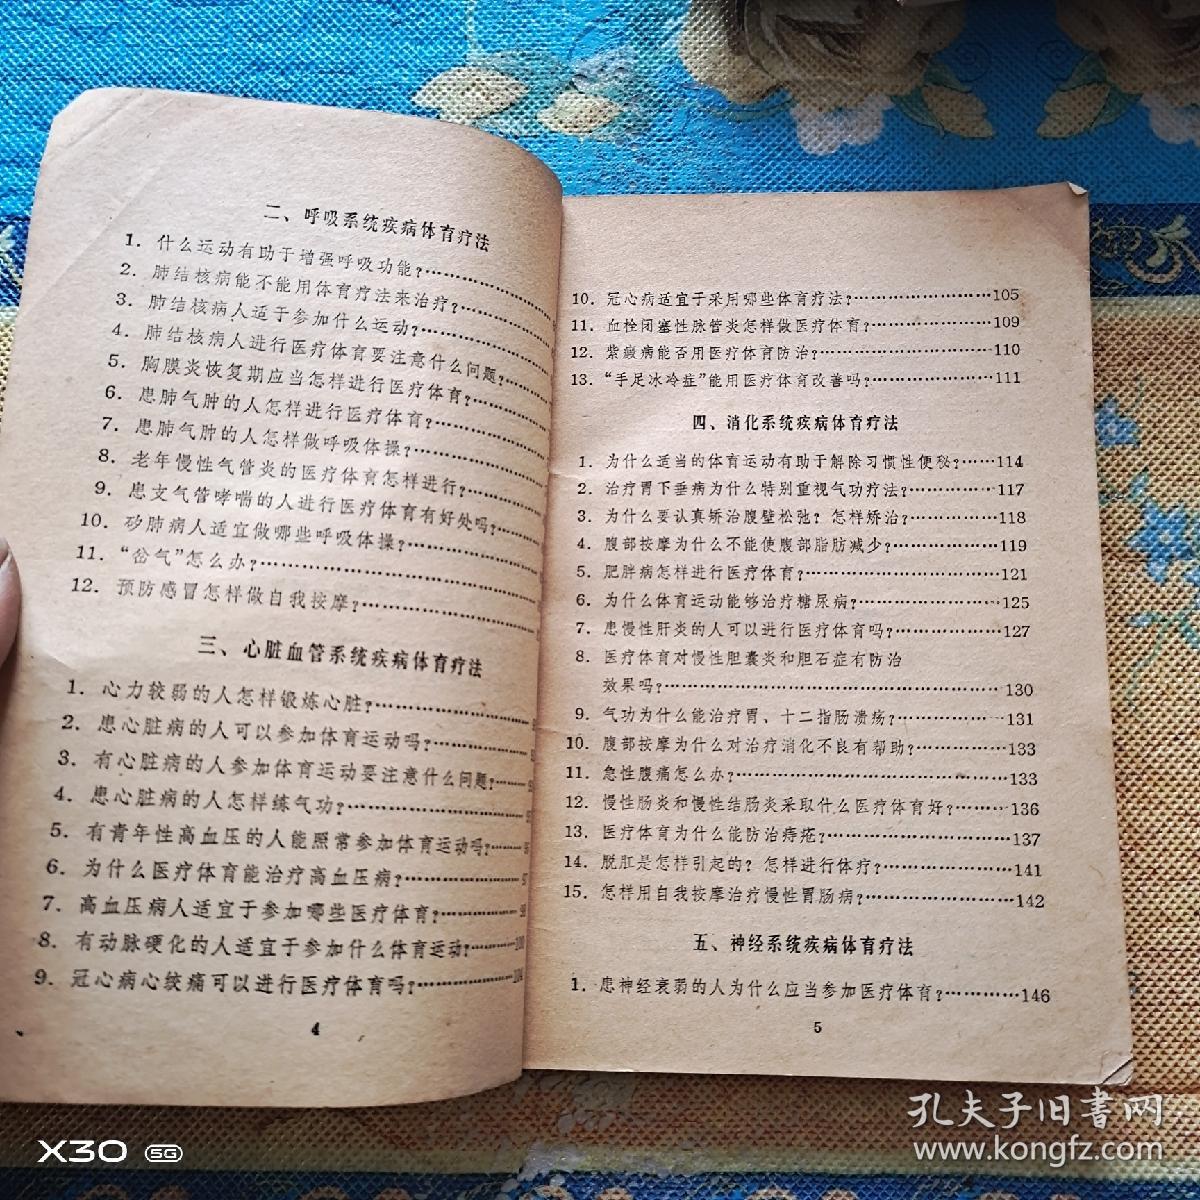 二、呼吸系统疾病体育疗法
1. 什么运动有助于增强呼吸功能?……………
2. 肺结核病能不能用体育疗法来治疗?…………
3. 肺结核病人适于参加什么运动?……………
4. 肺结核病人进行医疗体育要注意什么问题?……
5. 胸膜炎恢复期应当怎样进行医疗体育?………
6. 患肺气肿的人怎样进行医疗体育?……………
7. 患肺气肿的人怎样做呼吸体操?……………
8. 老年慢性气管炎的医疗体育怎样进行?………
9. 患支气管哮喘的人进行医疗体育有好处吗?……
10. 矽肺病人适宜做哪些呼吸体操?……………
11. “岔气”怎么办?……………………
12. 预防感冒怎样做自我按摩?………………
三、心脏血管系统疾病体育疗法
1. 心力较弱的人怎样锻炼心脏?……………
2. 患心脏病的人可以参加体育运动吗?…………
3. 有心脏病的人参加体育运动要注意什么问题?……
4. 患心脏病的人怎样练气功?………………
5. 有青年性高血压的人能照常参加体育运动吗?……
6. 为什么医疗体育能治疗高血压病?……………
7. 高血压病人适宜于参加哪些医疗体育?…………
8. 有动脉硬化的人适宜于参加什么体育运动?………100
9. 冠心病心绞痛可以进行医疗体育吗?…………104
4
10. 冠心病适宜于采用哪些体育疗法?……………105
11. 血栓闭塞性脉管炎怎样做医疗体育?…………109
12. 紫癜病能否用医疗体育防治?………………110
13. “手足冰冷症”能用医疗体育改善吗?…………111
四、消化系统疾病体育疗法
1. 为什么适当的体育运动有助于解除习惯性便秘?……114
2. 治疗胃下垂病为什么特别重视气功疗法?………117
3. 为什么要认真矫治腹壁松弛? 怎样矫治?………118
4. 腹部按摩为什么不能使腹部脂肪减少?…………119
5. 肥胖病怎样进行医疗体育?…………………121
6. 为什么体育运动能够治疗糖尿病?……………125
7. 患慢性肝炎的人可以进行医疗体育吗?…………127
8. 医疗体育对慢性胆囊炎和胆石症有防治
效果吗?……………………………130
9. 气功为什么能治疗胃、十二指肠溃疡?…………131
10. 腹部按摩为什么对治疗消化不良有帮助?………133
11. 急性腹痛怎么办?………………………133
12. 慢性肠炎和慢性结肠炎采取什么医疗体育好?……136
13. 医疗体育为什么能防治痔疮?………………137
14. 脱肛是怎样引起的? 怎样进行体疗?…………141
15. 怎样用自我按摩治疗慢性胃肠病?……………142
五、神经系统疾病体育疗法
1. 患神经衰弱的人为什么应当参加医疗体育?………146
5
X30 5G
孔夫子旧书网
www.kongfz.com